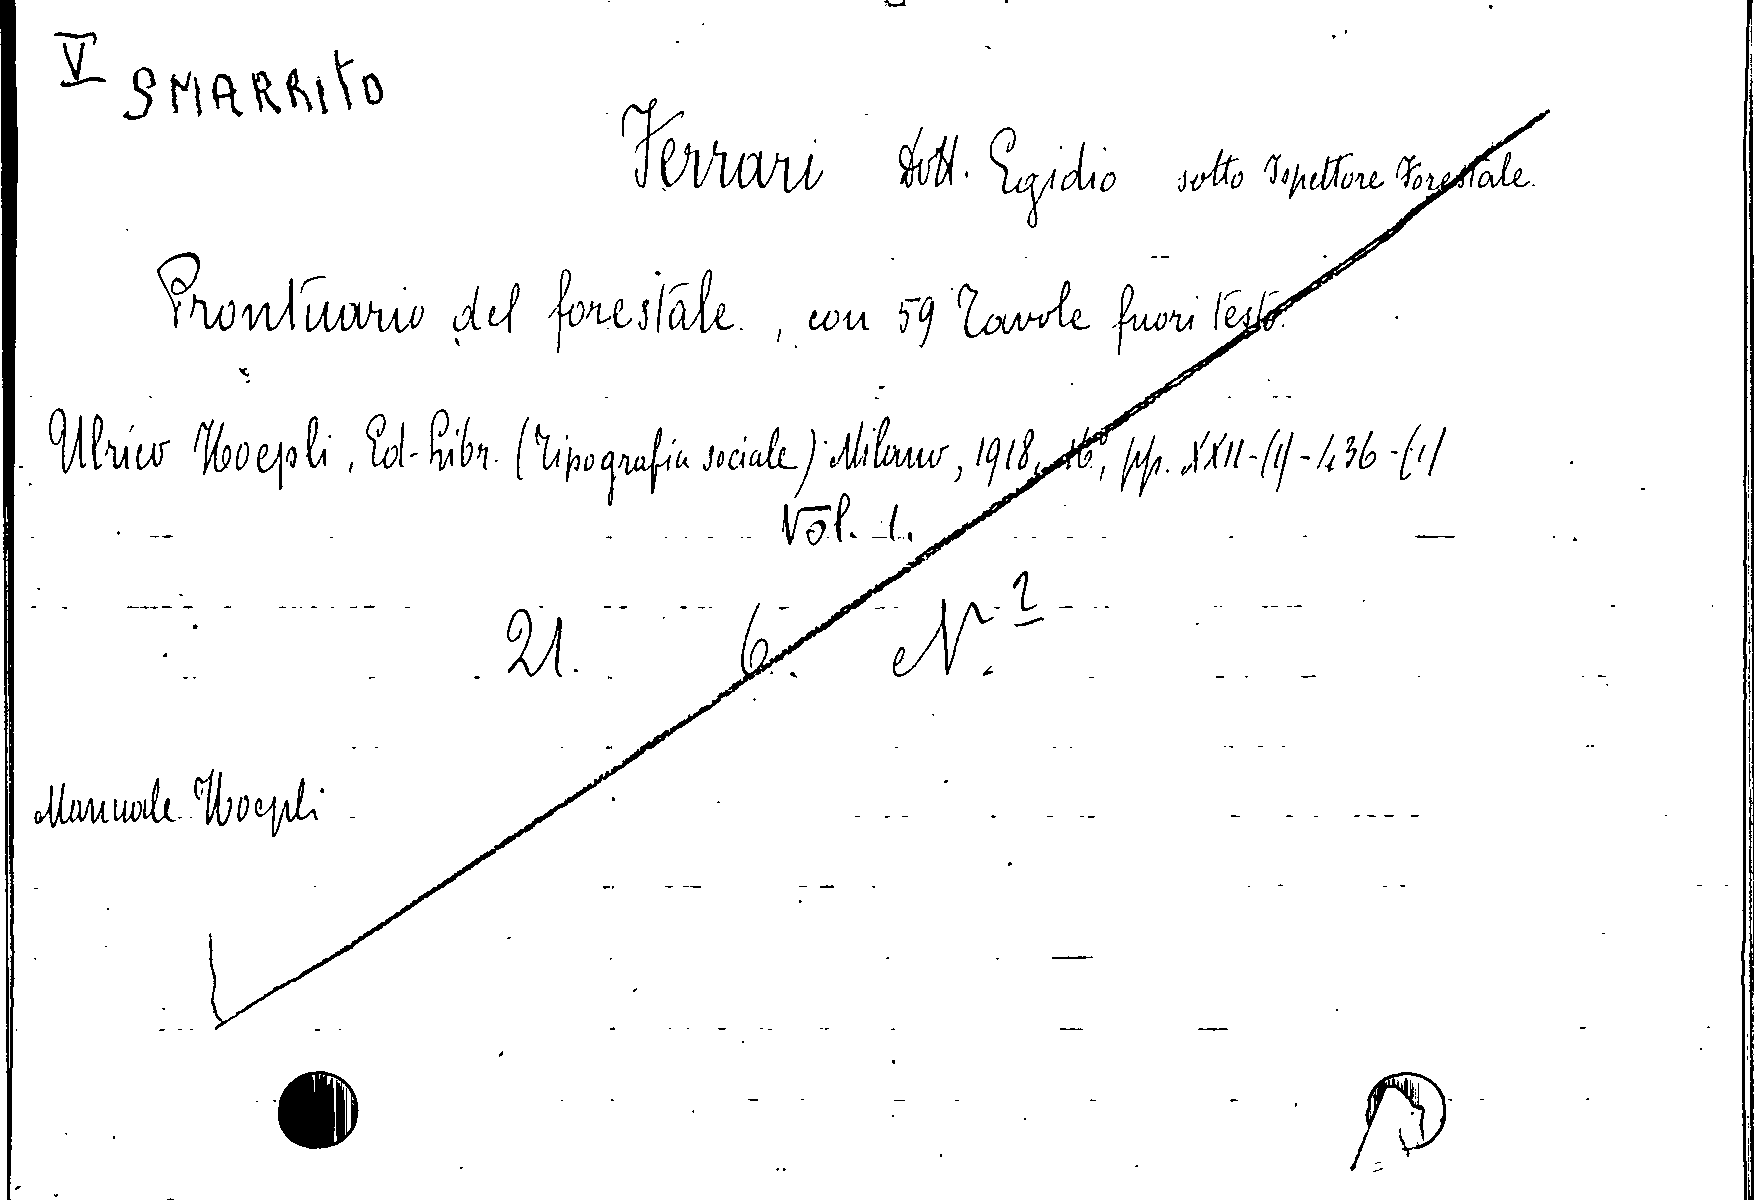 V SMARRITO
Ferrari Dott. Egidio sotto Ispettore Forestale.
Prontuario del forestale, con 59 Tavole fuori testo.
Ulrico Hoepli, Ed-Libr. (Tipografia sociale) Milano, 1918, 16°, pp. XXII-(1)-436-(1)
Vol. 1.
21. 6. N. 2
Manuale Hoepli